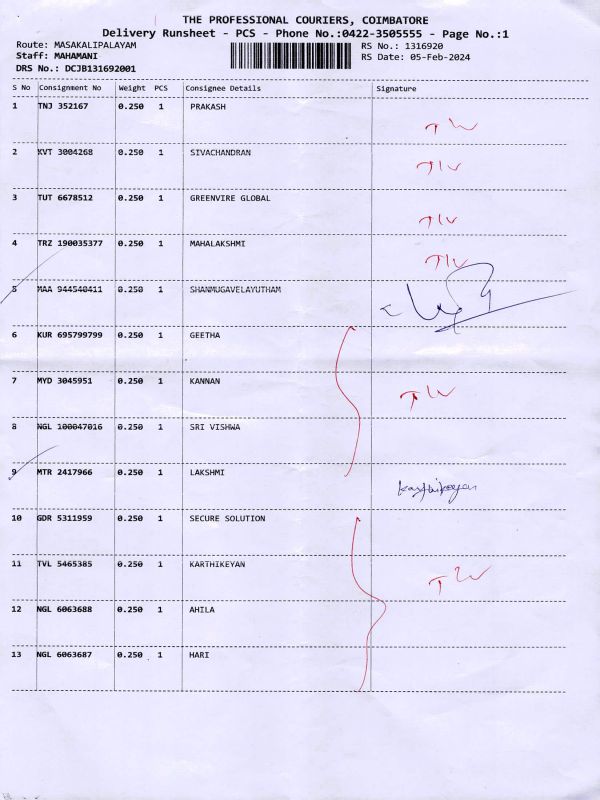 THE PROFESSIONAL COURIERS, COIMBATORE
Delivery Runsheet - PCS - Phone No.:0422-3505555 - Page No.:1
Route: MASAKALIPALAYAM RS No.: 1316920
Staff: MAHAMANI RS Date: 05-Feb-2024
DRS No.: DCJB131692001
S No Consignment No Weight PCS Consignee Details Signature
1 TNJ 352167 0.250 1 PRAKASH
2 KVT 3004268 0.250 1 SIVACHANDRAN
3 TUT 6678512 0.250 1 GREENVIRE GLOBAL
4 TRZ 190035377 0.250 1 MAHALAKSHMI
5 MAA 944540411 0.250 1 SHANMUGAVELAYUTHAM
6 KUR 695799799 0.250 1 GEETHA
7 MYD 3045951 0.250 1 KANNAN
8 NGL 100047016 0.250 1 SRI VISHWA
9 MTR 2417966 0.250 1 LAKSHMI
Karthikeyan
10 GDR 5311959 0.250 1 SECURE SOLUTION
11 TVL 5465385 0.250 1 KARTHIKEYAN
12 NGL 6063688 0.250 1 AHILA
13 NGL 6063687 0.250 1 HARI